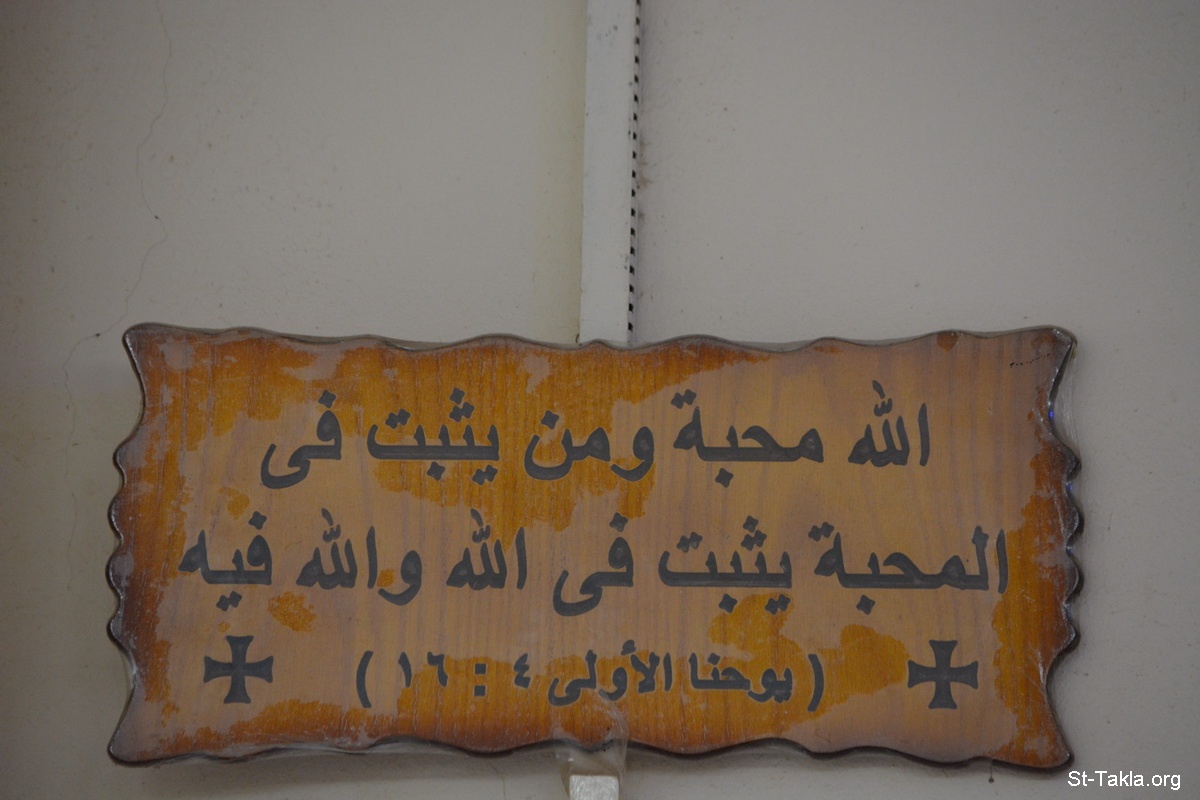 الله محبة ومن يثبت فى
المحبة يثبت فى الله والله فيه
(يوحنا الأولى ٤ : ١٦)
St-Takla.org